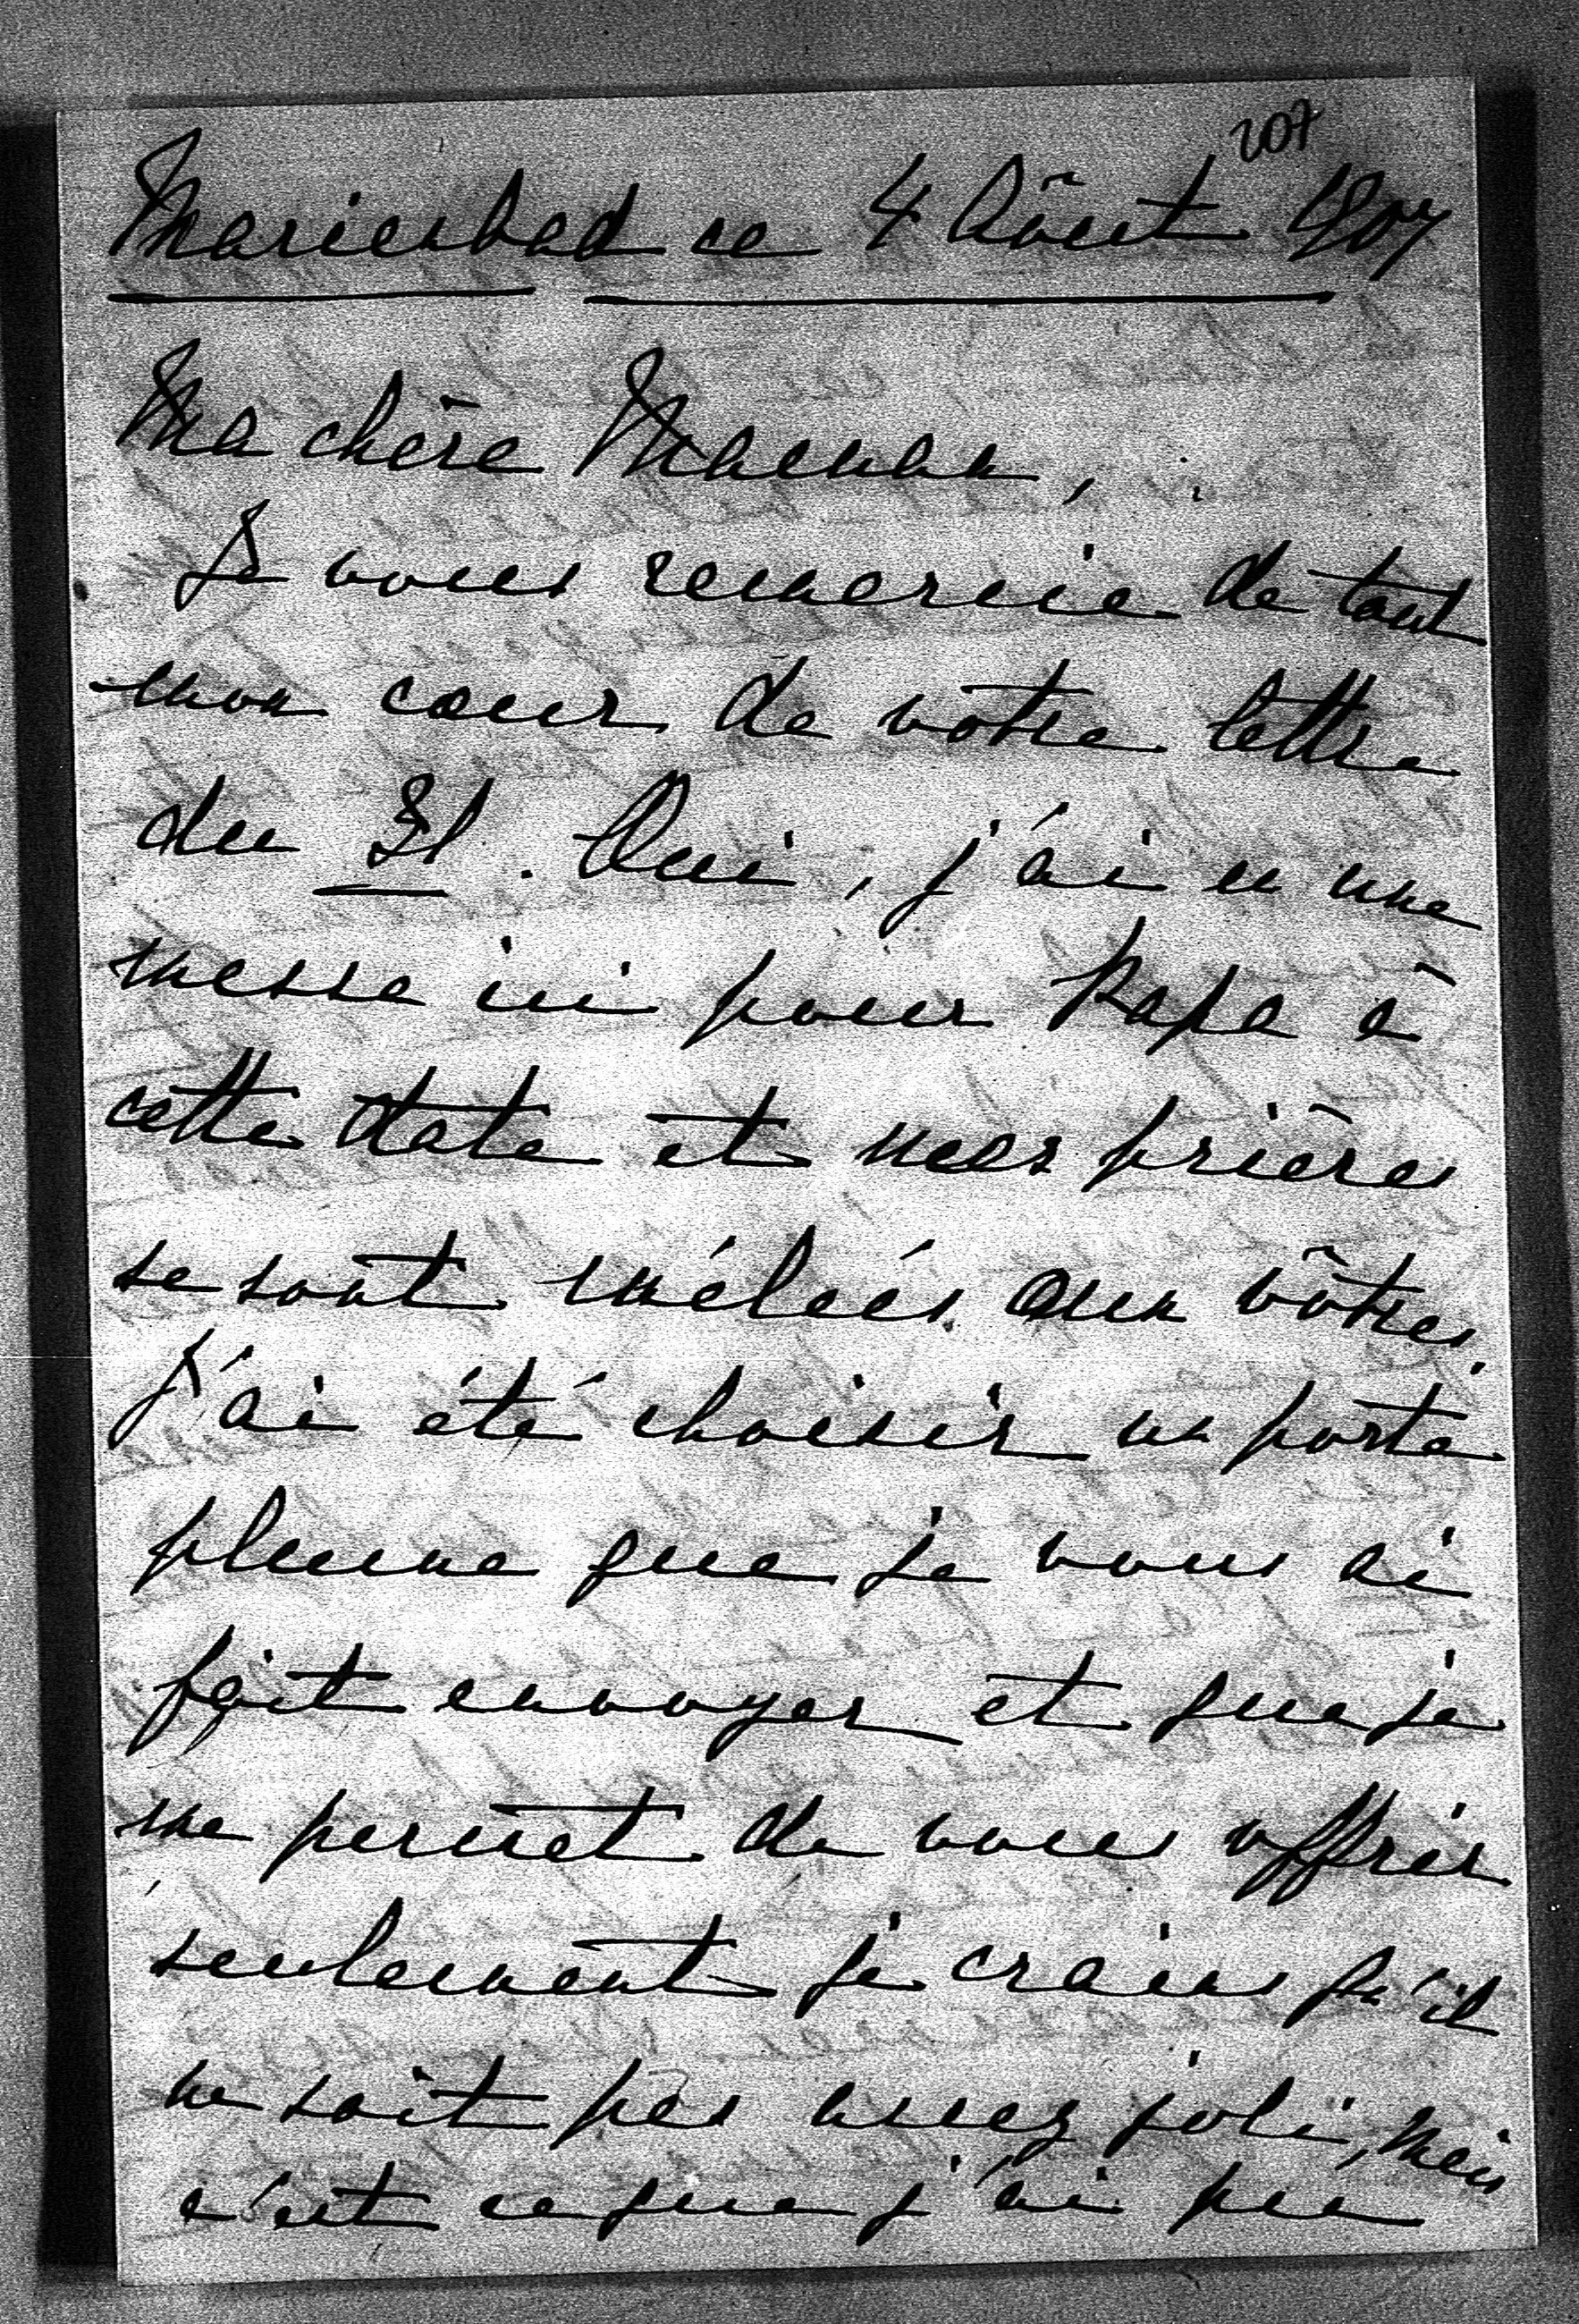 207
Marienbad ce 4 Août 1907
Ma chère Maman,
Je vous remercie de tout
mon cœur de votre lettre
du 31. Oui, j'ai eu une
messe ici pour Papa à
cette date et mes prières
se sont mêlées aux vôtres.
J'ai été choisir un porte
plume que je vous ai
fait envoyer et que je
me permet de vous offrir
seulement je crains qu'il
ne soit pas assez joli, mais
c'est ce que j'ai pu